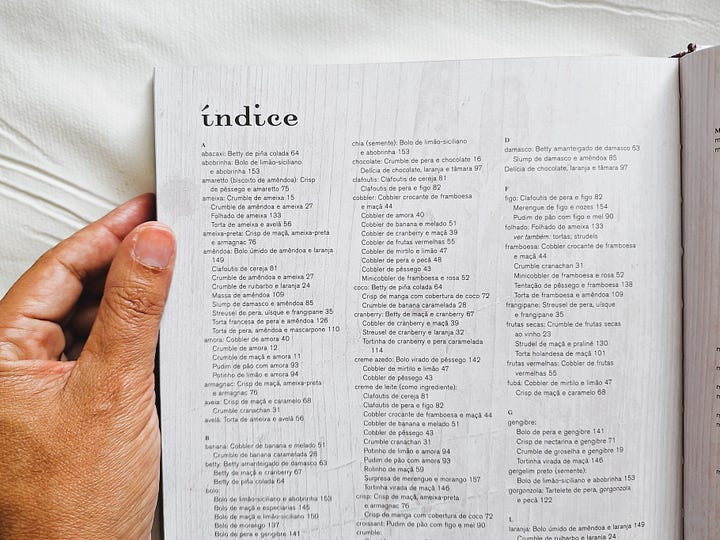 índice
A
abacaxi: Betty de piña colada 64
abobrinha: Bolo de limão-siciliano
e abobrinha 153
amaretto (biscoito de amêndoa): Crisp
de pêssego e amaretto 75
ameixa: Crumble de ameixa 15
Crumble de amêndoa e ameixa 27
Folhado de ameixa 133
Torta de ameixa e avelã 56
ameixa-preta: Crisp de maçã, ameixa-preta
e armagnac 76
amêndoa: Bolo úmido de amêndoa e laranja
149
Clafoutis de cereja 81
Crumble de amêndoa e ameixa 27
Crumble de ruibarbo e laranja 24
Massa de amêndoa 109
Slump de damasco e amêndoa 85
Streusel de pera, uísque e frangipane 35
Torta francesa de pera e amêndoa 126
Torta de pera, amêndoa e mascarpone 110
amora: Cobbler de amora 40
Crumble de amora 12
Crumble de maçã e amora 11
Pudim de pão com amora 93
Potinho de limão e amora 94
armagnac: Crisp de maçã, ameixa-preta
e armagnac 76
aveia: Crisp de maçã e caramelo 68
Crumble cranachan 31
avelã: Torta de ameixa e avelã 56
B
banana: Cobbler de banana e melado 51
Crumble de banana caramelada 28
betty: Betty amanteigado de damasco 63
Betty de maçã e cranberry 67
Betty de piña colada 64
bolo:
Bolo de limão-siciliano e abobrinha 153
Bolo de maçã e especiarias 145
Bolo de maçã e limão-siciliano 150
Bolo de morango 137
Bolo de pera e gengibre 141
chia (semente): Bolo de limão-siciliano
e abobrinha 153
chocolate: Crumble de pera e chocolate 16
Delícia de chocolate, laranja e tâmara 97
clafoutis: Clafoutis de cereja 81
Clafoutis de pera e figo 82
cobbler: Cobbler crocante de framboesa
e maçã 44
Cobbler de amora 40
Cobbler de banana e melado 51
Cobbler de cranberry e maçã 39
Cobbler de frutas vermelhas 55
Cobbler de mirtilo e limão 47
Cobbler de pera e pecã 48
Cobbler de pêssego 43
Minicobbler de framboesa e rosa 52
coco: Betty de piña colada 64
Crisp de manga com cobertura de coco 72
Crumble de banana caramelada 28
cranberry: Betty de maçã e cranberry 67
Cobbler de cranberry e maçã 39
Streusel de cranberry e laranja 32
Tortinha de cranberry e pera caramelada
114
creme azedo: Bolo virado de pêssego 142
Cobbler de mirtilo e limão 47
Cobbler de pêssego 43
creme de leite (como ingrediente):
Clafoutis de cereja 81
Clafoutis de pera e figo 82
Cobbler crocante de framboesa e maçã 44
Cobbler de banana e melado 51
Cobbler de pêssego 43
Crumble cranachan 31
Potinho de limão e amora 94
Pudim de pão com amora 93
Rolinho de maçã 59
Surpresa de merengue e morango 157
Tortinha virada de maçã 146
crisp: Crisp de maçã, ameixa-preta
e armagnac 76
Crisp de manga com cobertura de coco 72
croissant: Pudim de pão com figo e mel 90
crumble:
D
damasco: Betty amanteigado de damasco 63
Slump de damasco e amêndoa 85
Delícia de chocolate, laranja e tâmara 97
F
figo: Clafoutis de pera e figo 82
Merengue de figo e nozes 154
Pudim de pão com figo e mel 90
folhado: Folhado de ameixa 133
ver também: tortas; strudels
framboesa: Cobbler crocante de framboesa
e maçã 44
Crumble cranachan 31
Minicobbler de framboesa e rosa 52
Tentação de pêssego e framboesa 138
Torta de framboesa e amêndoa 109
frangipane: Streusel de pera, uísque
e frangipane 35
frutas secas: Crumble de frutas secas
ao vinho 23
Strudel de maçã e praliné 130
Torta holandesa de maçã 101
frutas vermelhas: Cobbler de frutas
vermelhas 55
fubá: Cobbler de mirtilo e limão 47
Crisp de maçã e caramelo 68
G
gengibre:
Bolo de pera e gengibre 141
Crisp de nectarina e gengibre 71
Crumble de groselha e gengibre 19
Tortinha virada de maçã 146
gergelim preto (semente):
Bolo de limão-siciliano e abobrinha 153
gorgonzola: Tartelete de pera, gorgonzola
e pecã 122
L
laranja: Bolo úmido de amêndoa e laranja 149
Crumble de ruibarbo e laranja 24